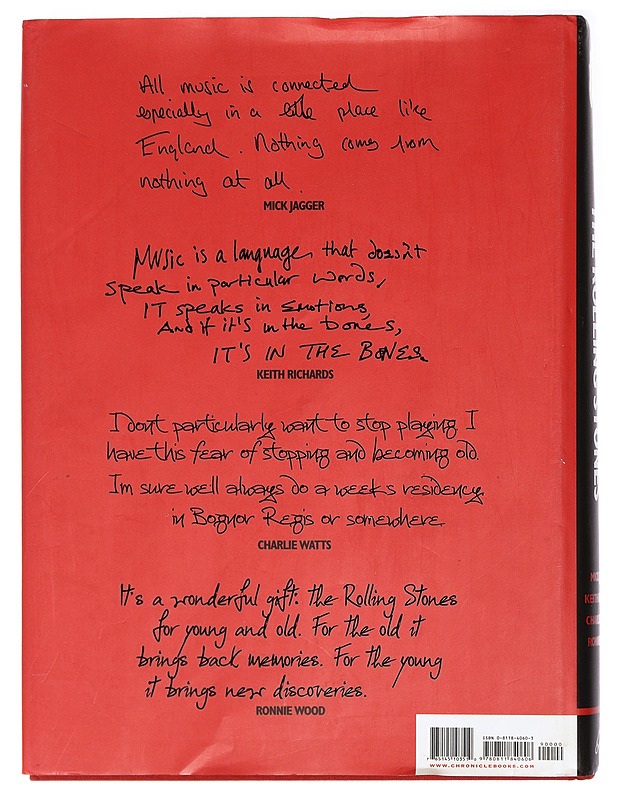 All music is connected
especially in a little place like
England. Nothing comes from
nothing at all.
MICK JAGGER
Music is a language that doesn't
speak in particular words,
IT speaks in Emotions,
And if it's in the bones,
IT'S IN THE BONES.
KEITH RICHARDS
I dont particularly want to stop playing. I
have this fear of stopping and becoming old.
Im sure well always do a weeks residency
in Bognor Regis or somewhere.
CHARLIE WATTS
It's a wonderful gift: the Rolling Stones
for young and old. For the old it
brings back memories. For the young
it brings new discoveries.
RONNIE WOOD
THE ROLLING STONES
MICK
KEITH
CHAR
RON
ISBN 0-8118-4060-3
90000
9 780811 840606
WWW.CHRONICLEBOOKS.COM